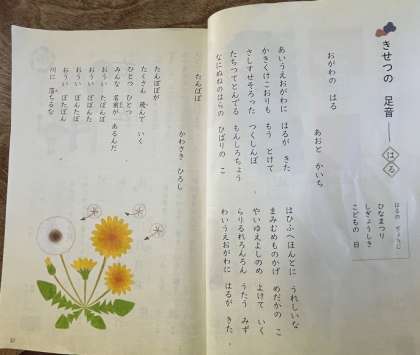 きせつの 足音――はる
はるの ぎょうじ
ひなまつり
しぎょうしき
こどもの 日
おがわの はる
あおと かいち
あいうえおがわに はるが きた
かきくけこおりも もう とけて
さしすせそろった つくしんぼ
たちつてとんでる もんしろちょう
なにぬねのはらの ひばりの こ
はひふへほんとに うれしいな
まみむめものかげ めだかの こ
やいゆえよしのめ よけて いく
らりるれろんろん うたう みず
わいうえおがわに はるが きた。
たんぽぽ
かわさき ひろし
たんぽぽが
たくさん 飛んで いく
ひとつ ひとつ
みんな 名前が あるんだ
おうい たぽんぽ
おうい ぽぽんた
おうい ぽんたぽ
おうい ぽたぽん
川に 落ちるな